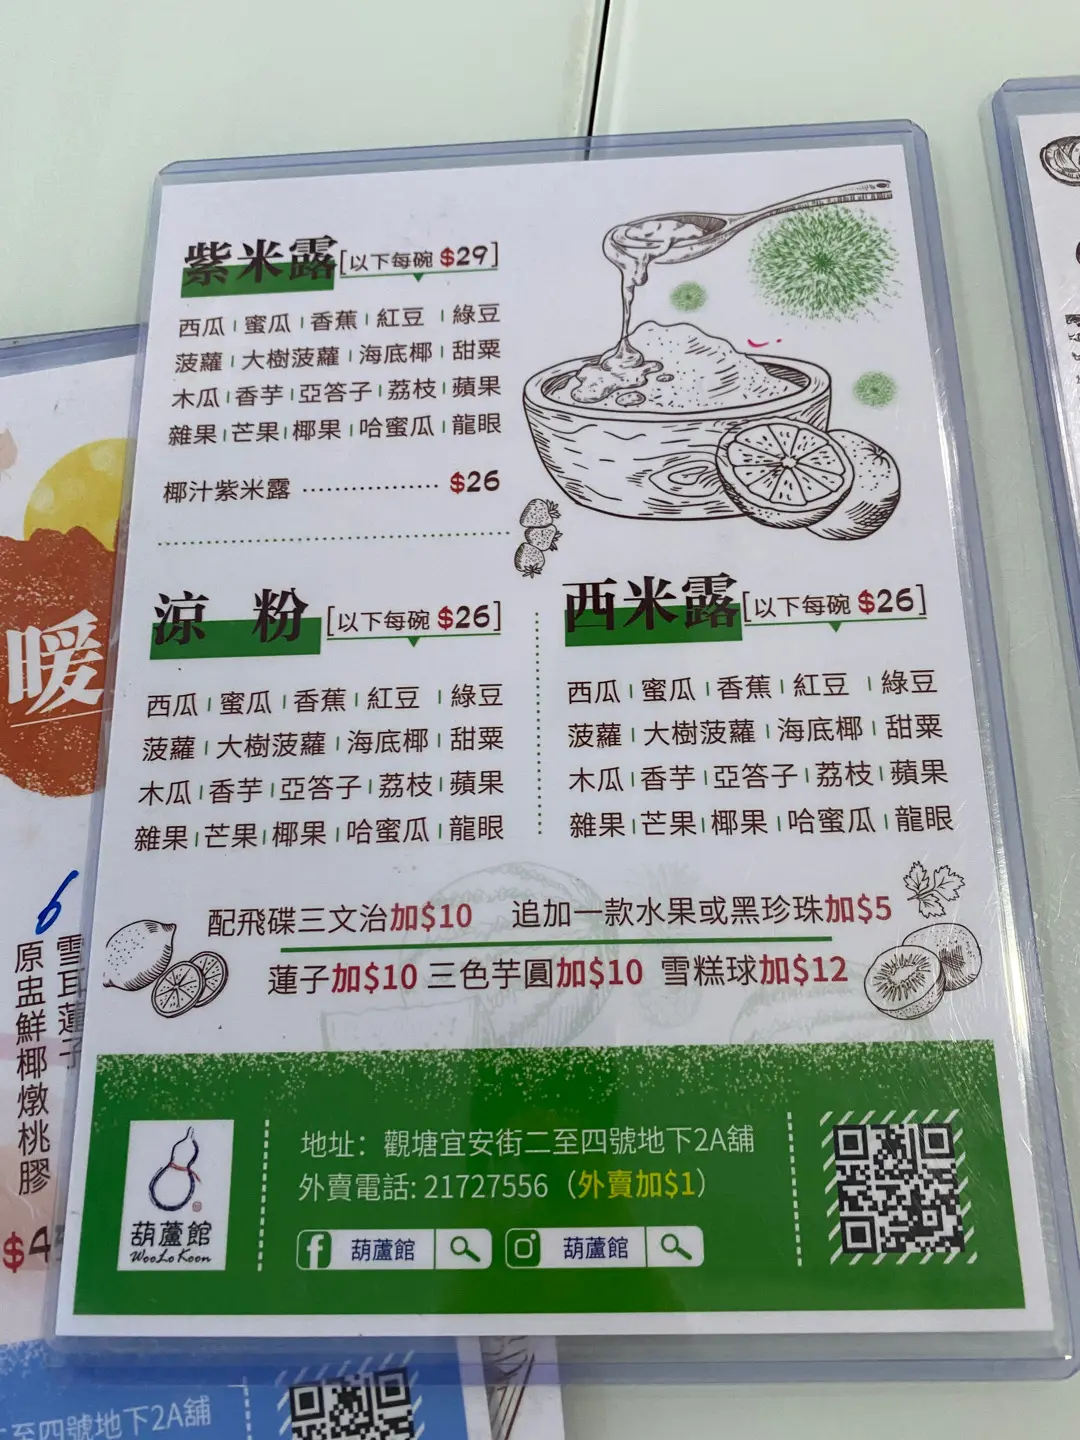 紫米露[以下每碗 $29]
西瓜|蜜瓜|香蕉|紅豆|綠豆
菠蘿|大樹菠蘿|海底椰|甜粟
木瓜|香芋|亞答子|荔枝|蘋果
雜果|芒果|椰果|哈蜜瓜|龍眼
椰汁紫米露 ················ $26
涼 粉[以下每碗 $26]
西瓜|蜜瓜|香蕉|紅豆|綠豆
菠蘿|大樹菠蘿|海底椰|甜粟
木瓜|香芋|亞答子|荔枝|蘋果
雜果|芒果|椰果|哈蜜瓜|龍眼
西米露[以下每碗 $26]
西瓜|蜜瓜|香蕉|紅豆|綠豆
菠蘿|大樹菠蘿|海底椰|甜粟
木瓜|香芋|亞答子|荔枝|蘋果
雜果|芒果|椰果|哈蜜瓜|龍眼
配飛碟三文治加$10 追加一款水果或黑珍珠加$5
蓮子加$10 三色芋圓加$10 雪糕球加$12
葫蘆館
WooLo Koon
地址：觀塘宜安街二至四號地下2A舖
外賣電話: 21727556（外賣加$1）
葫蘆館
葫蘆館
暖
6
雪耳蓮子
原盅鮮椰燉桃膠
$4
二至四號地下2A舖